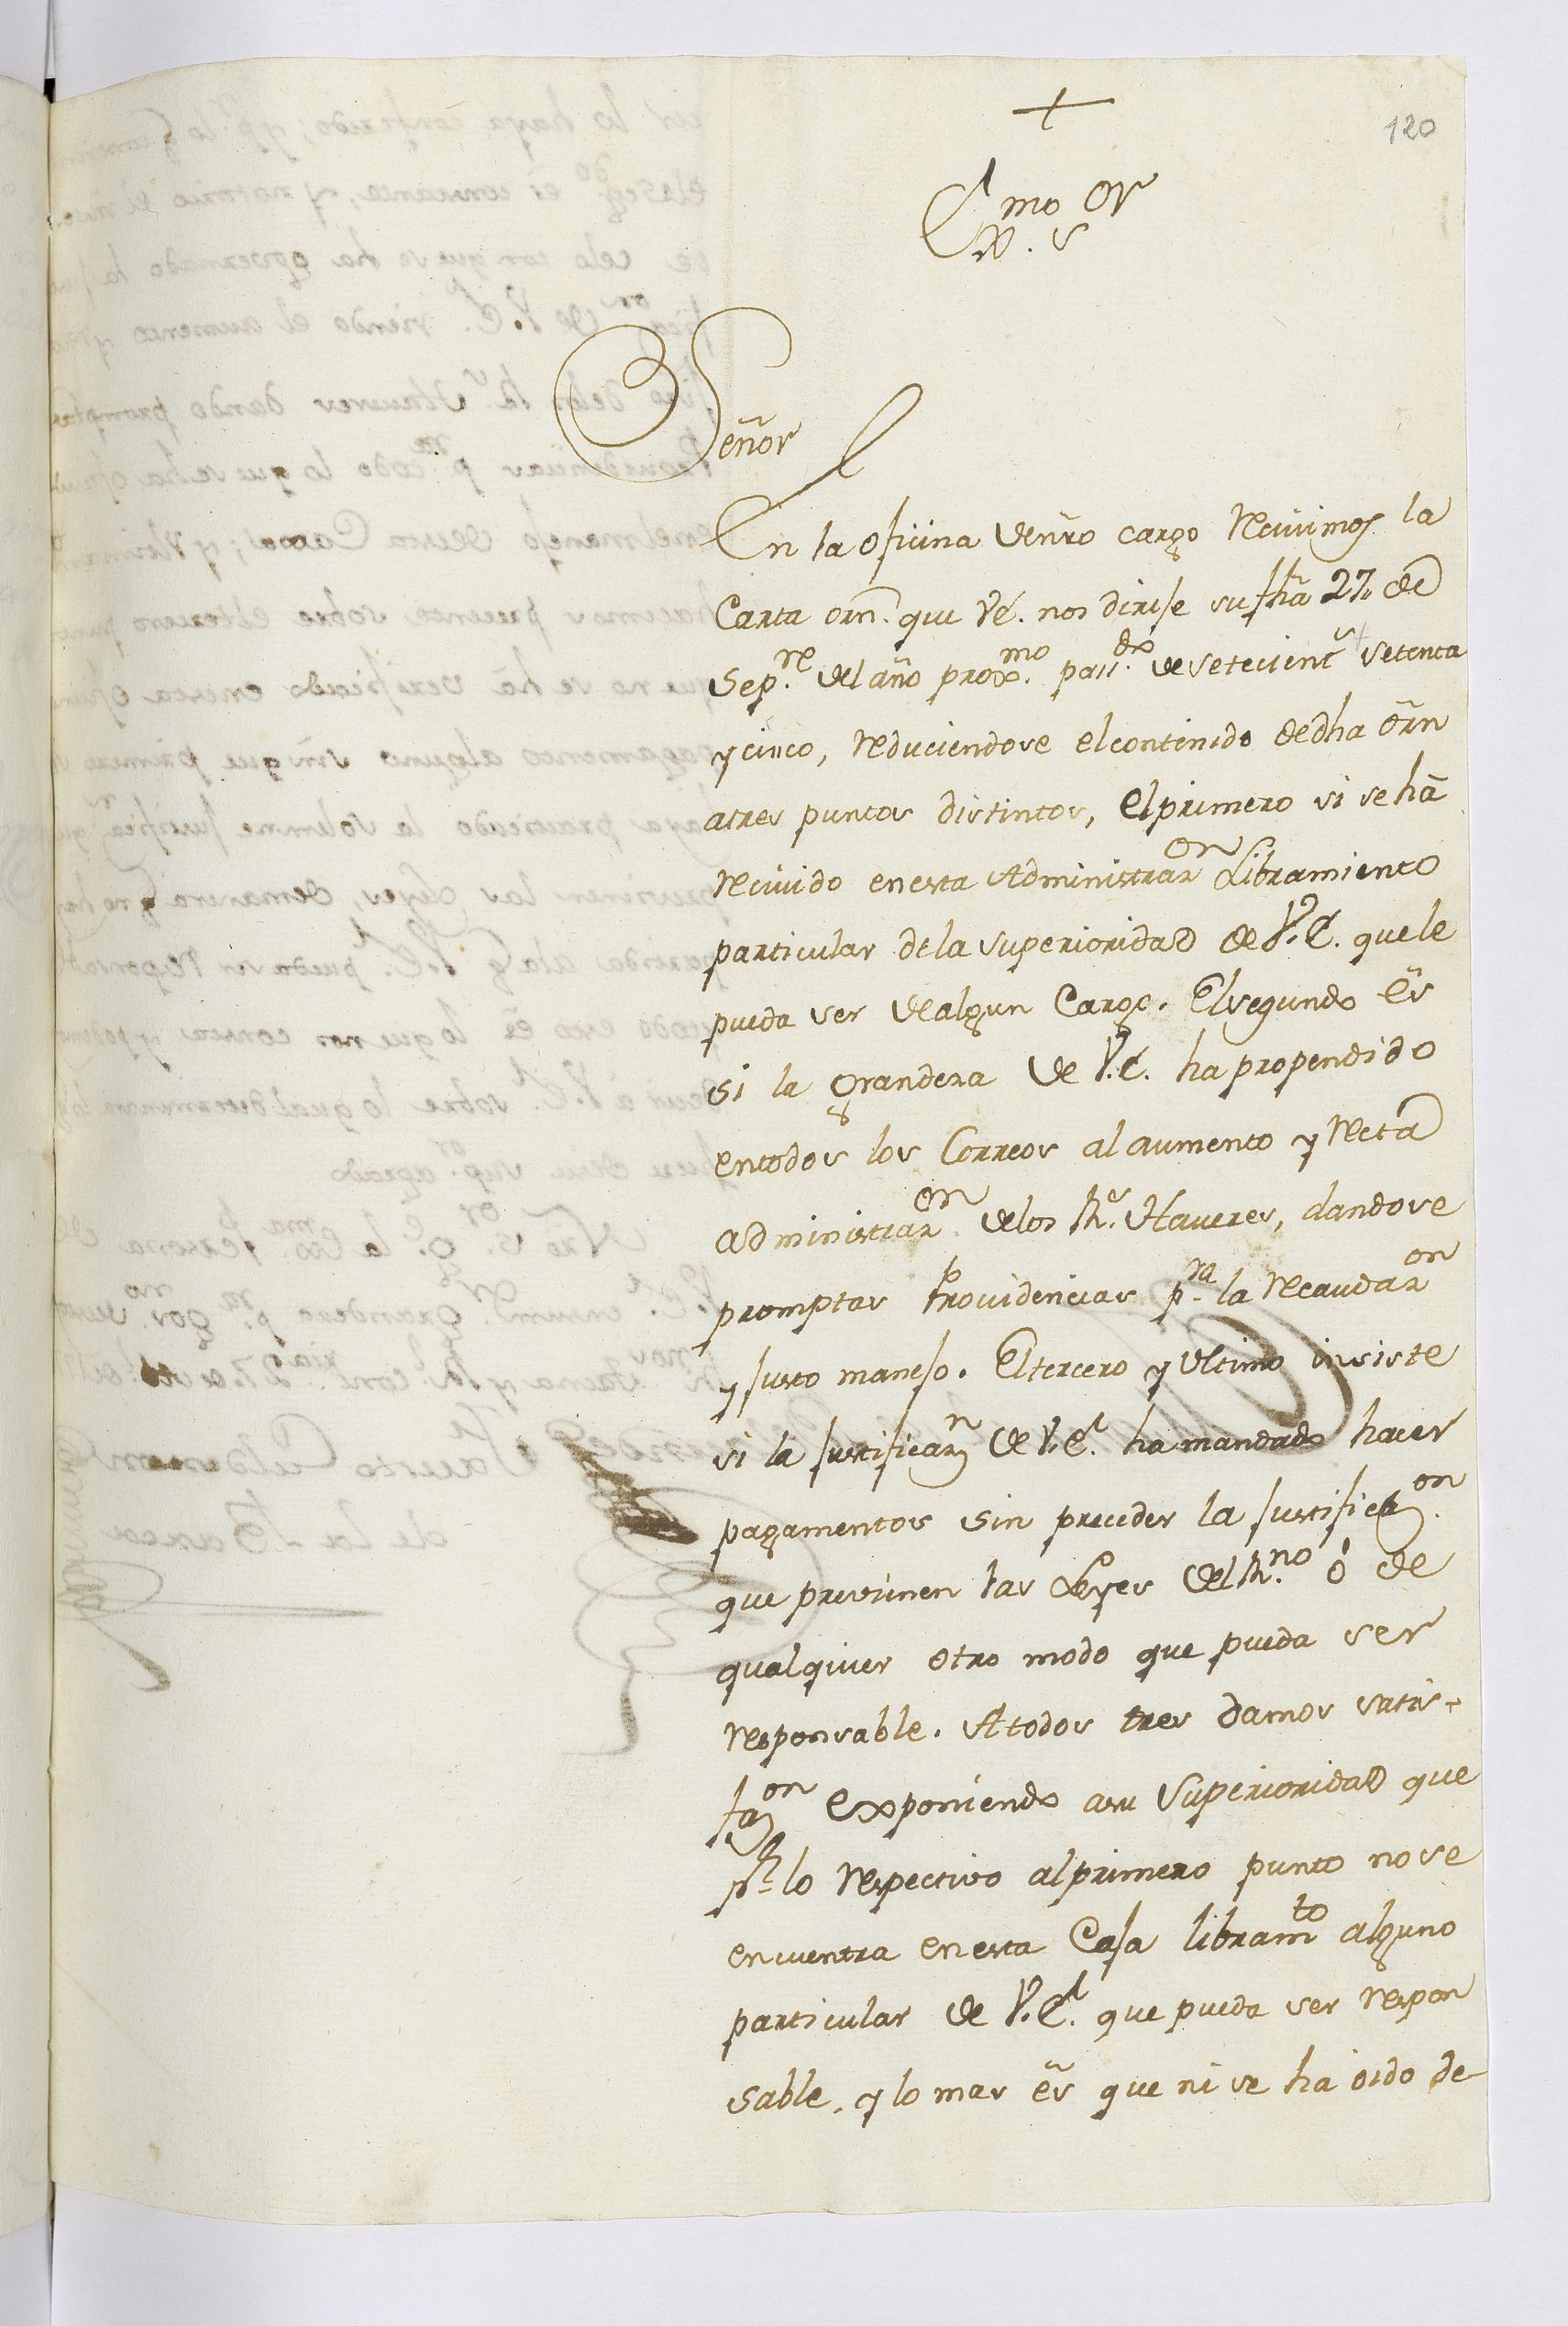 120
Exmo. Sor
Señor
En la oficina de nr̃o cargo recivimos la
Carta orn̄. que V.e. nos dirije su fhã 27. de
Sepre. del año proxmo. passdo. de setecients setenta
y cinco, reduciendose el contenido de dha orñ
a tres puntos distintos, el primero si se hã
recivido en esta Administrazon Libramiento
particular de la superioridad de V.E. que le
pueda ser de algun Cargo. El segundo ẽs
si la grandeza de V.E. ha propendido
en todos los Correos al aumento y recta
administrazon. de los Rs. Haveres, dandose
promptas Providencias pra. la recaudazon
y justo manejo. El tercero y ultimo insiste
si la justificazn de V.E. ha mandado hacer
pagamentos sin preceder la justificazon.
que previenen las Leyes del Rno. ó de
qualquier otro modo que pueda ser
responsable. A todos tres damos satis-
fazon exponiendo a su Superioridad que
pr. lo respectivo al primero punto no se
encuentra en esta Caja libramto alguno
particular de V.E. que pueda ser respon
sable, y lo mas ẽs que ni se ha oido de-